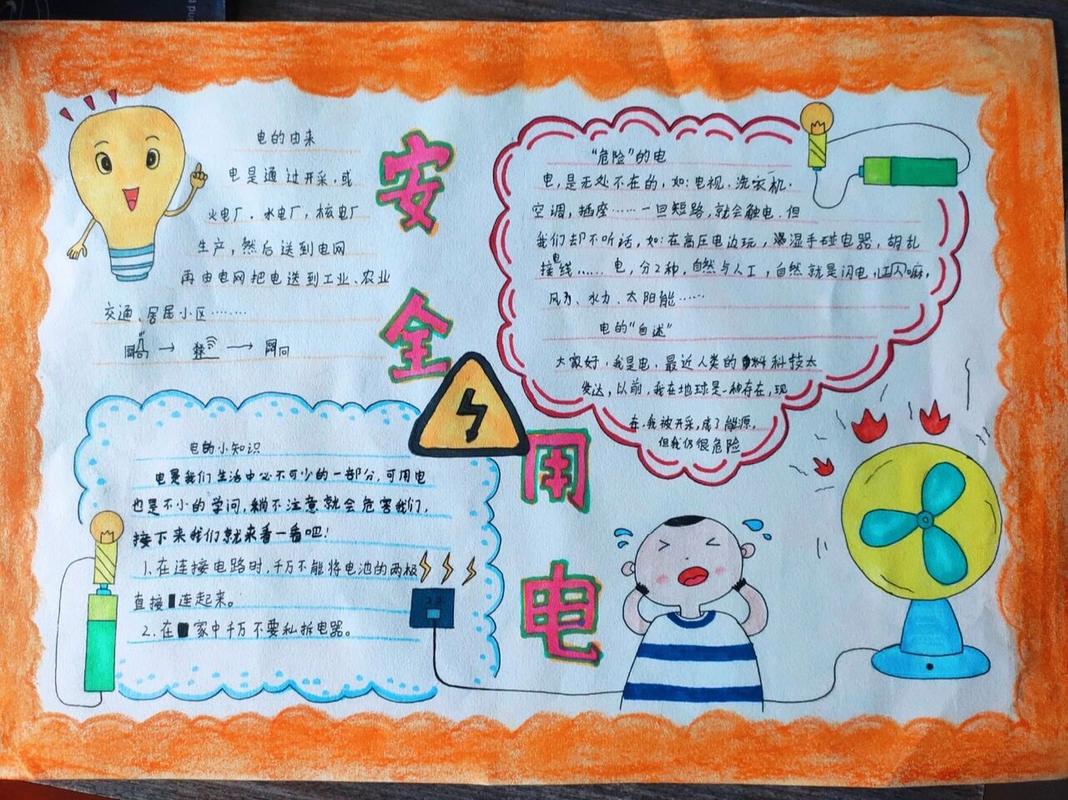 安全用电
电的由来
电是通过开采,或
火电厂、水电厂,核电厂
生产,然后送到电网
再由电网把电送到工业、农业
交通、居民小区……
“危险”的电
电,是无处不在的,如:电视、洗衣机、
空调,插座……一旦短路,就会触电.但
我们却不听话,如:在高压电边玩,湿手碰电器,胡乱
接电线……电,分2种,自然与人工,自然就是闪电,人工嘛,
风力、水力、太阳能……
电的“自述”
大家好,我是电,最近人类的科技太
发达,以前,我在地球是一种存在,现
在,我被开采,成了能源,
但我仍很危险
电的小知识
电是我们生活中必不可少的一部分,可用电
也是不小的学问,稍不注意就会危害我们,
接下来我们就来看一看吧!
1.在连接电路时,千万不能将电池的两极
直接连起来。
2.在家中千万不要私拆电器。